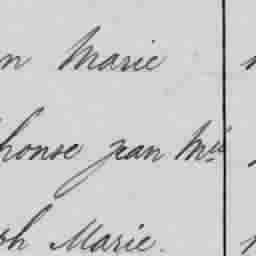 n Marie
honse jean Mie
ph Marie.